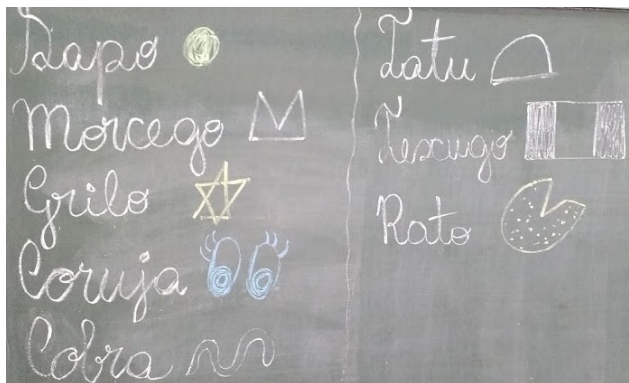 Sapo
Morcego
Grilo
Coruja
Cobra
Tatu
Texugo
Rato